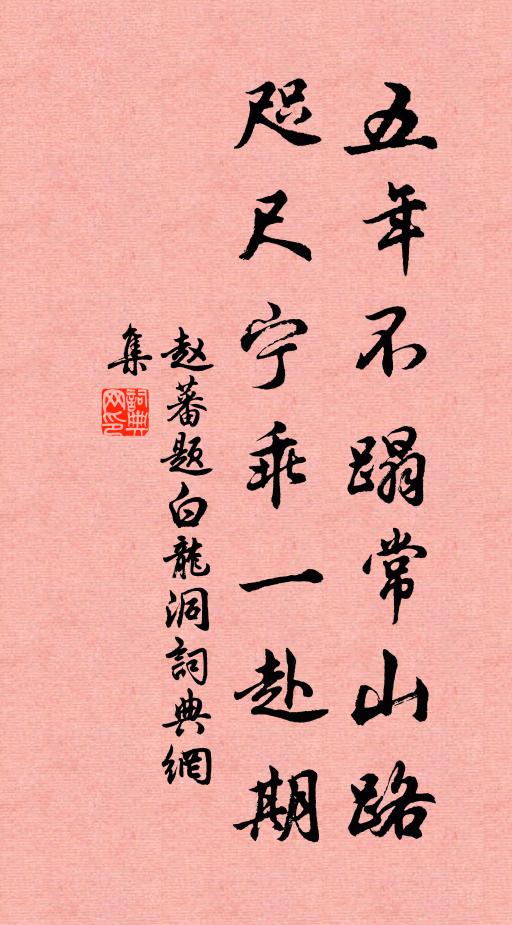 五年不蹋常山路
咫尺宁乖一赴期
赵蕃题白龍洞詞典網
集
詞典网印